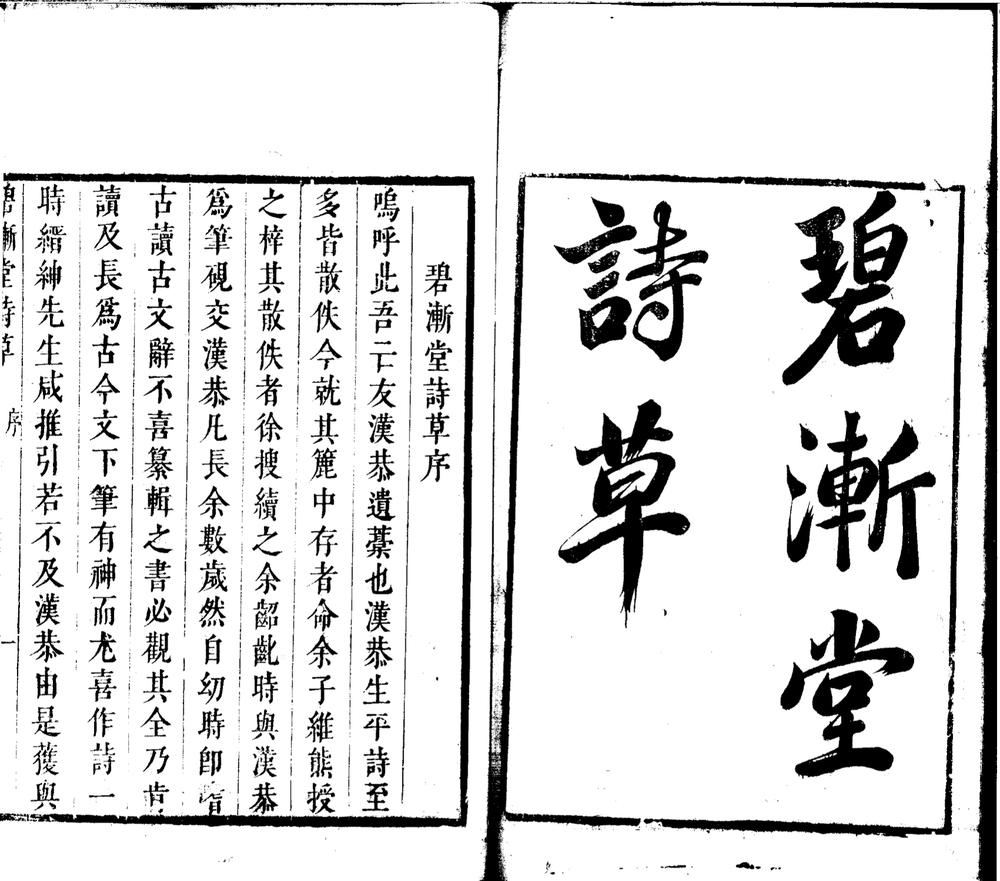 碧漸堂
詩草
碧漸堂詩草序
嗚呼此吾亡友漢恭遺藁也漢恭生平詩至
多皆散佚今就其簏中存者命余子維熊授
之梓其散佚者徐搜續之余齠齔時與漢恭
爲筆硯交漢恭凡長余數歲然自幼時卽嗜
古讀古文辭不喜纂輯之書必觀其全乃肯
讀及長爲古今文下筆有神而尤喜作詩一
時縉紳先生咸推引若不及漢恭由是蒦與
碧漸堂詩草
序
一